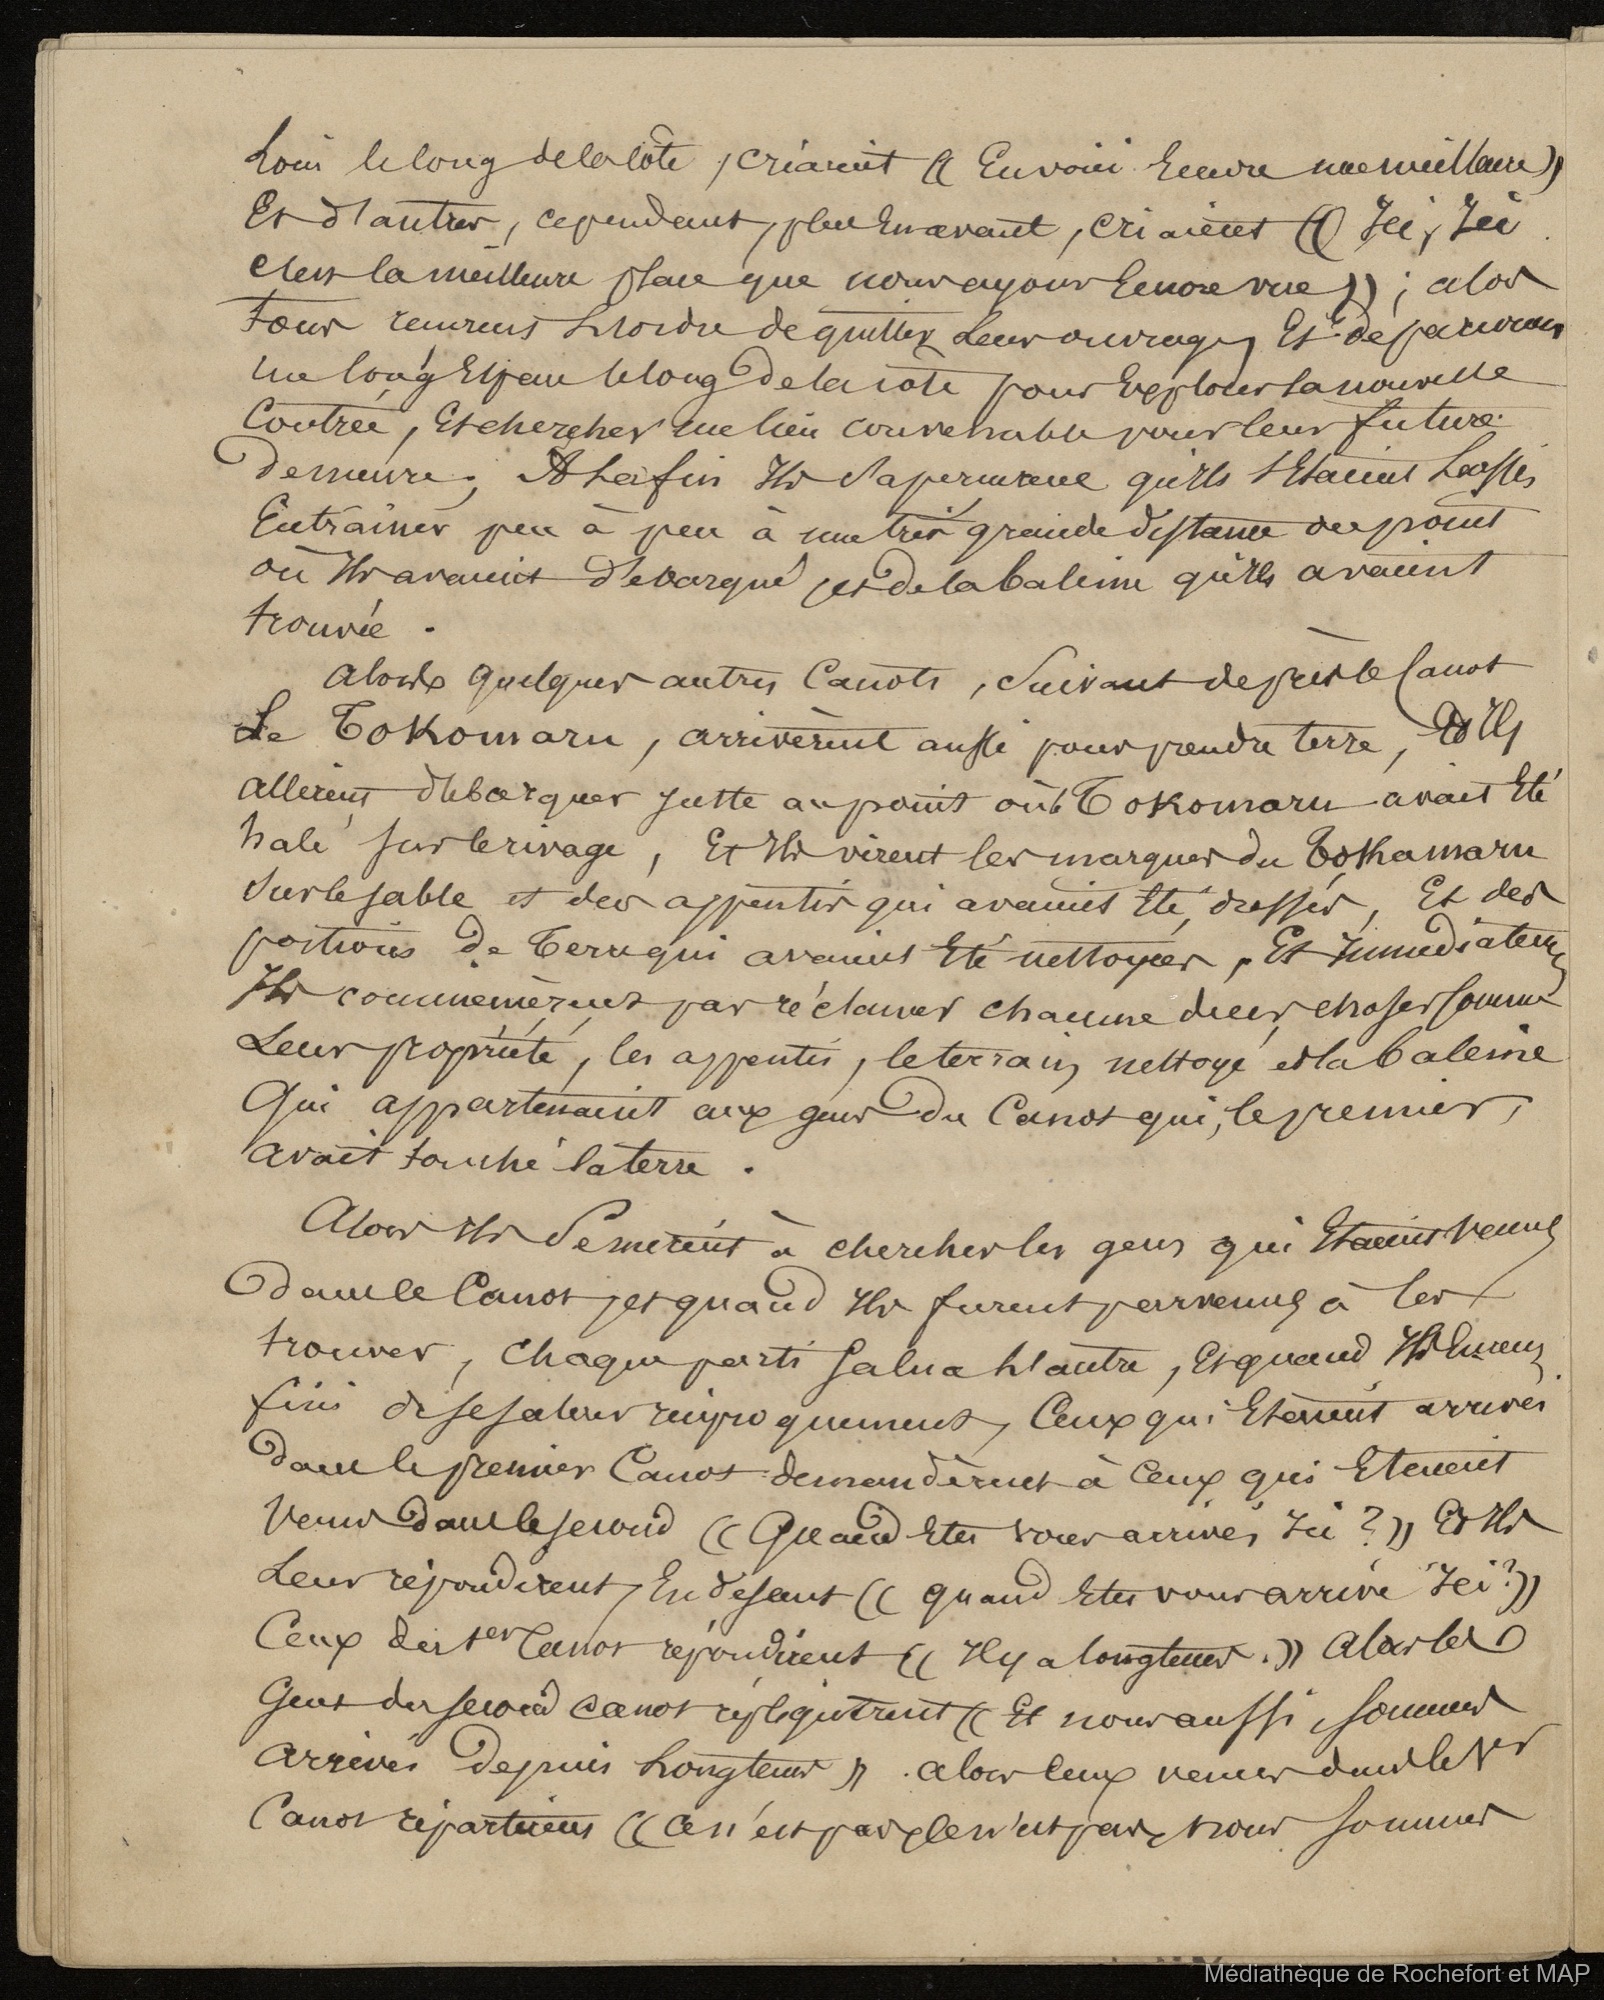 Loin le long de la côte, criaient (( En voici Encore une meilleure))
Et d'autres, cependant, plus En avant, criaient (( Ici, Ici
c'est la meilleure place que nous ayons Encore vue)) ; alors
tous reçurent L'ordre de quitter Leur ouvrage, Et de parcourir
Un long Espace le long De la côte pour Explorer la nouvelle
Contrée, Et chercher un lieu convenable pour leur future
Demeure ; A La fin Ils s'aperçurent qu'Ils s'Etaient Laissés
Entraîner peu à peu à une très grande distance du point
où Ils avaient débarqué, et De la baleine qu'Ils avaient
trouvée .
Alors quelques autres Canots, Suivant de près le Canot
Le Tokomaru, arrivèrent aussi pour prendre terre, Et Ils
allèrent débarquer juste au point où le Tokomaru avait Eté
halé sur le rivage, Et Ils virent les marques du Tokomaru
Sur le sable et des appentis qui avaient Eté dressés, Et des
portions De Terre qui avaient Eté nettoyées, Et Immédiatem
Ils commencèrent par réclamer chacune de ces choses comme
Leur propriété, les appentis, le terrain nettoyé et la baleine
Qui appartenaient aux gens Du Canot qui, le premier,
avait touché la terre .
Alors Ils Se mirent à chercher les gens qui Etaient Venus
Dans le Canot, et quand Ils furent parvenus à les
trouver, chaque parti Salua L'autre, Et quand Ils Eurent
fini de se saluer réciproquement, Ceux qui Etaient arrivés
Dans le premier Canot demandèrent à Ceux qui Etaient
Venus Dans le second (( Quand Etes Vous arrivés Ici ? )) Et Ils
Leur répondirent, En disant (( quand Etes vous arrivé Ici ? ))
Ceux du 1er Canot répondirent (( Il y a longtems . )) Alors les
Gens du second canot répliquèrent (( Et nous aussi, sommes
Arrivés Depuis Longtems )) . alors ceux venus dans le 1er
Canot repartirent (( Ce n'est pas, Ce n'est pas, nous sommes
Médiathèque de Rochefort et MAP